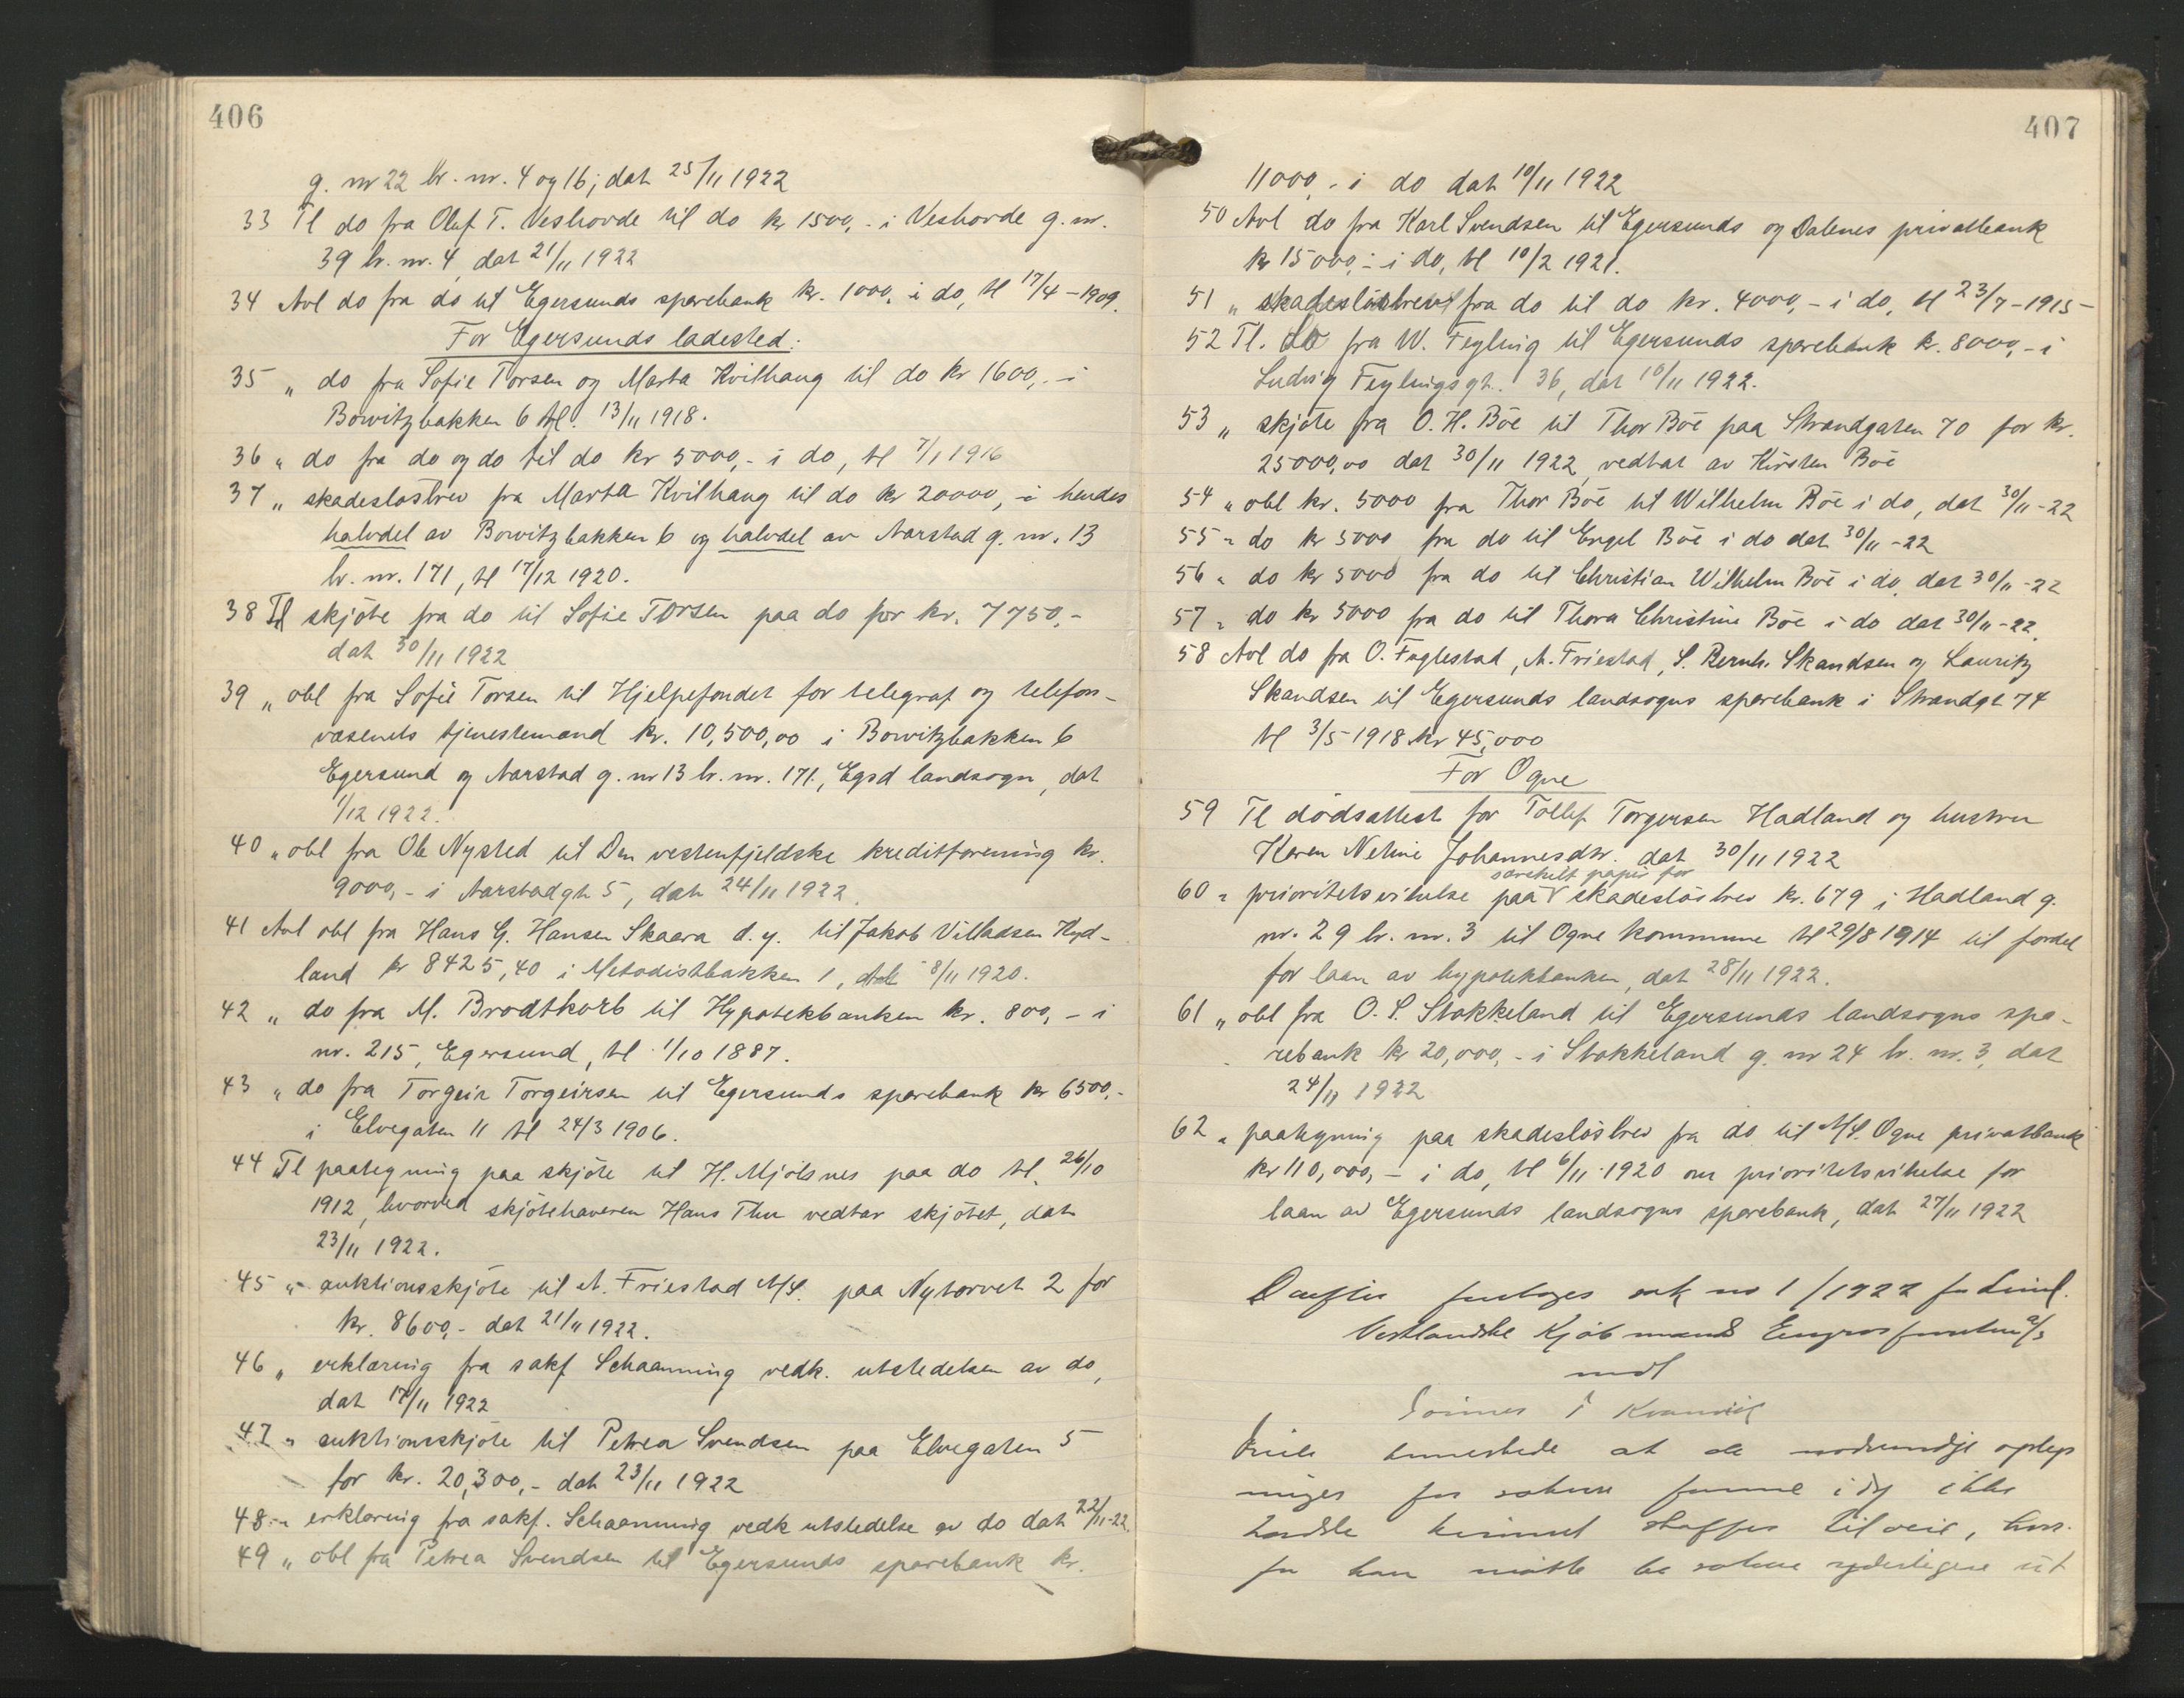 406
g. nr 22 br. nr. 4 og 16; dat 25/11 1922
33 Tl do fra Oluf T. Veshovde til do kr 1500,- i Veshovde g. nr.
39 br. nr. 4, dat 21/11 1922
34 Avl do fra do til Egersunds sparebank kr. 1000, i do, tl 17/4 - 1909.
For Egersunds ladested:
35 „ do fra Sofie Torsen og Marta Kvilhaug til do kr 1600,- i
Bowitzbakken 6 tl. 13/11 1918.
36 „ do fra do og do til do kr 5000,- i do, tl 7/1 1916
37 „ skadesløsbrev fra Marta Kvilhaug til do kr 20000, i hendes
halvdel av Bowitzbakken 6 og halvdel av Aarstad g. nr. 13
br. nr. 171, tl 17/12 1920.
38 Tl skjöte fra do til Sofie Torsen paa do for kr. 7750,-
dat 30/11 1922
39 „ obl fra Sofie Torsen til Hjelpefondet for telegraf og telefon-
væsenets tjenestemænd kr. 10,500,00 i Bowitzbakken 6
Egersund og Aarstad g. nr 13 br. nr. 171, Egsd landsogn, dat
1/12 1922.
40 „ obl fra Ole Nysted til Den vestenfjeldske kreditforening kr.
9000,- i Aarstadgt 5, dat 24/11 1922.
41 Avl obl fra Hans G. Hansen Skaara d. y. til Jakob Villadsen Hyd-
land kr 8425,40 i Metodistbakken 1, 8/11 1920.
42 „ do fra M. Brodtkorb til Hypotekbanken kr. 800,- i
nr. 215, Egersund, tl 1/10 1887.
43 „ do fra Torgeir Torgeirsen til Egersunds sparebank kr 6500,-
i Elvegaten 11 tl 24/3 1906.
44 Tl paategning paa skjöte til H. Mjölsnes paa do tl. 26/10
1912, hvorved skjötehaveren Hans Thu vedtar skjötet, dat
23/11 1922.
45 „ auktionsskjöte til A. Friestad A/S. paa Nytorvet 2 for
kr. 8600,- dat 21/11 1922.
46 „ erklæring fra sakf Schaanning vedk. utstedelsen av do,
dat 17/11 1922
47 „ auktionsskjöte til Petrea Svendsen paa Elvegaten 5
for kr. 20,300,- dat 23/11 1922
48 „ erklæring fra sakf. Schaanning vedk utstedelse av do dat 22/11-22.
49 „ obl fra Petrea Svendsen til Egersunds sparebank kr.
407
11000,- i do dat 10/11 1922
50 Avl do fra Karl Svendsen til Egersunds og Dalenes privatbank
kr 15000,- i do, tl 10/2 1921.
51 „ skadeslösbrev fra do til do kr. 4000,- i do, tl 23/7 - 1915 -
52 Tl. do fra W. Feyling til Egersunds sparebank kr. 8000,- i
Ludvig Feylingsgt. 36, dat 10/11 1922.
53 „ skjöte fra O. H. Böe til Thor Böe paa Strandgaten 70 for kr.
25000,00 dat 30/11 1922, vedtat av Kirsten Böe
54 „ obl kr. 5000 fra Thor Böe til Wilhelm Böe i do, dat 30/11-22
55 „ do kr 5000 fra do til Engel Böe i do dat 30/11-22
56 „ do kr 5000 fra do til Christian Wilhelm Böe i do, dat 30/11-22
57 „ do kr 5000 fra do til Thora Christine Böe i do dat 30/11-22.
58 Avl do fra O. Fuglestad, A. Friestad, S. Bernh. Skandsen og Lauritz
Skandsen til Egersunds landsogns sparebank i Strandgt 74
tl 3/5 1918 kr 45,000
For Ogne
59 Tl dödsattest for Tollef Torgersen Hadland og hustru
Karen Netine Johannesdtr. dat 30/11 1922
særskilt papir for
60 „ prioritetsvikelse paa skadeslösbrev kr. 679 i Hadland g.
nr. 29 br. nr. 3 til Ogne kommune tl 29/8 1914 til fordel
for laan av hypotekbanken, dat 28/11 1922.
61 „ obl fra O. S. Stokkeland til Egersunds landsogns spa-
rebank kr 20,000,- i Stokkeland g. nr 24 br. nr. 3, dat
24/11 1922
62 „ paategning paa skadeslösbrev fra do til A/S. Ogne privatbank
kr 110,000,- i do, tl 6/11 1920 om prioritetsvikelse for
laan av Egersunds landsogns sparebank, dat 27/11 1922
sak no 1/1922
Vestlandske Kjöbmænds A/S
mot
i
at de
for i dag ikke
skaffes tilveie,
han maatte yderligere ut